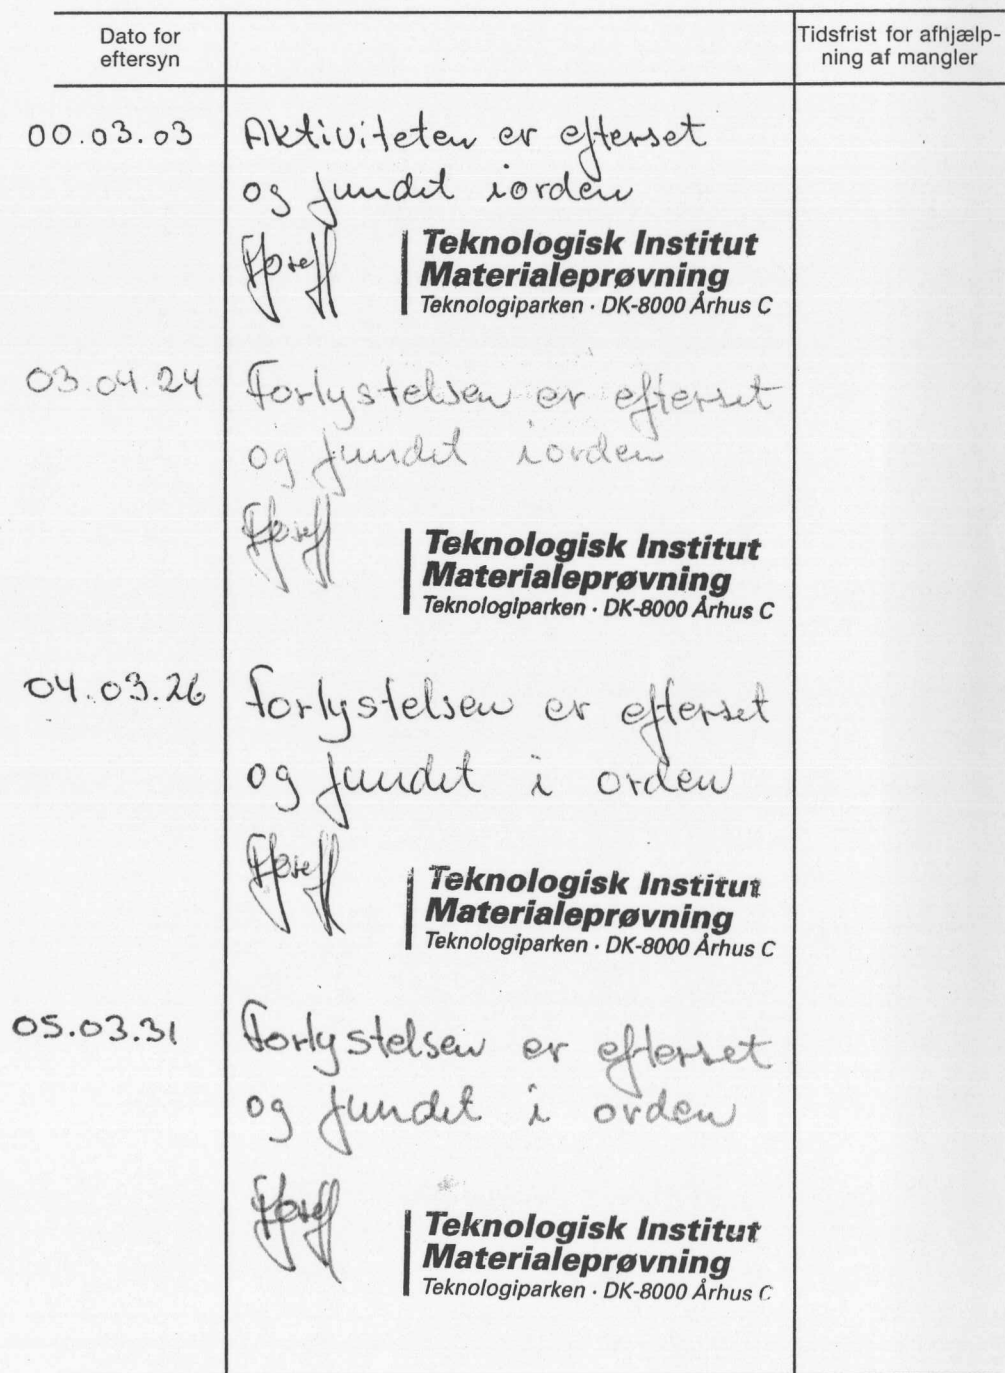 Dato for
eftersyn
Tidsfrist for afhjælp-
ning af mangler
00.03.03
Aktiviteten er efterset
og fundet iorden
Teknologisk Institut
Materialeprøvning
Teknologiparken · DK-8000 Århus C
03.04.24
Forlystelsen er efterset
og fundet iorden
Teknologisk Institut
Materialeprøvning
Teknologiparken · DK-8000 Århus C
04.03.26
Forlystelsen er efterset
og fundet i orden
Teknologisk Institut
Materialeprøvning
Teknologiparken · DK-8000 Århus C
05.03.31
Forlystelsen er efterset
og fundet i orden
Teknologisk Institut
Materialeprøvning
Teknologiparken · DK-8000 Århus C